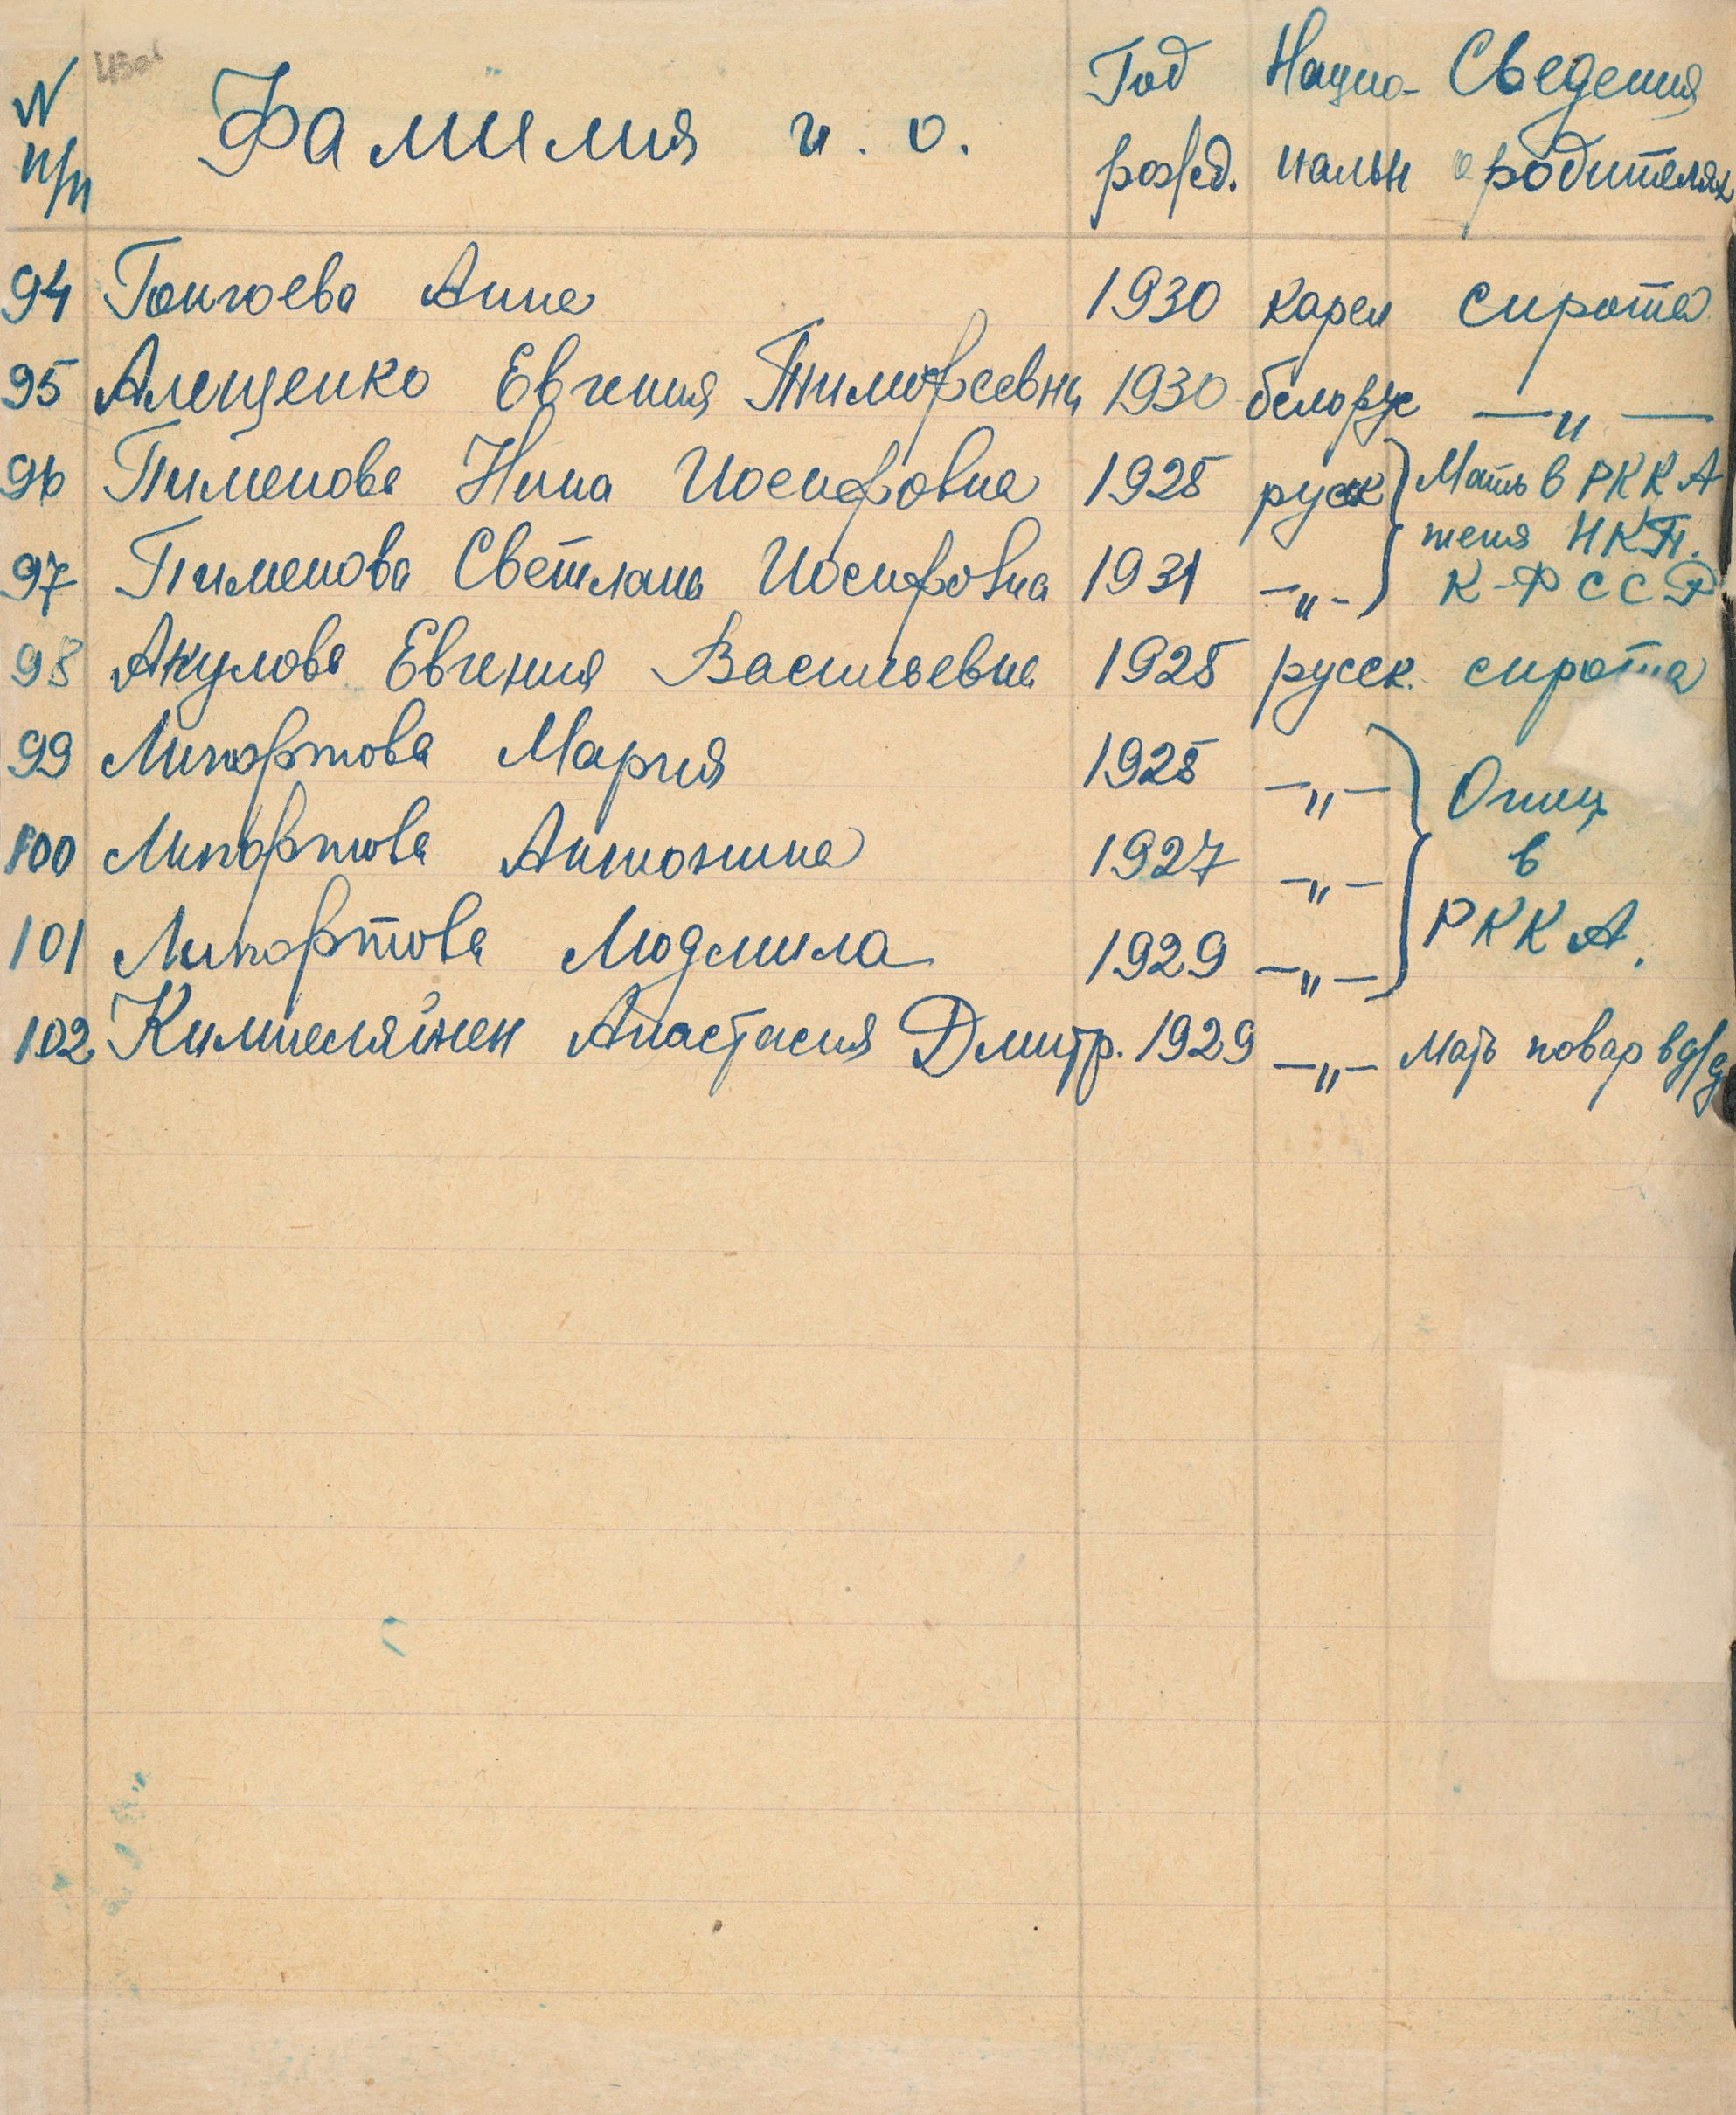 N п/п Фамилия и. о. Год рожд. Нацио-нальн Сведения о родителях
94 Гонгоева Анна 1930 карел сирота
95 Алещенко Евгения Тимофеевна 1930 белорус —„—
96 Пименова Нина Иосифовна 1928 русск Мать в РККА
тетя НКП.
97 Пименова Светлана Иосифовна 1931 —„— К-ФССР
98 Акулова Евгения Васильевна 1928 русск. сирота
99 Липартова Мария 1928 —„— Отец
100 Липартова Антонина 1927 —„— в
101 Липартова Людмила 1929 —„— РККА.
102 Киммеляйнен Анастасия Дмитр. 1929 —„— Мать повар в д/д